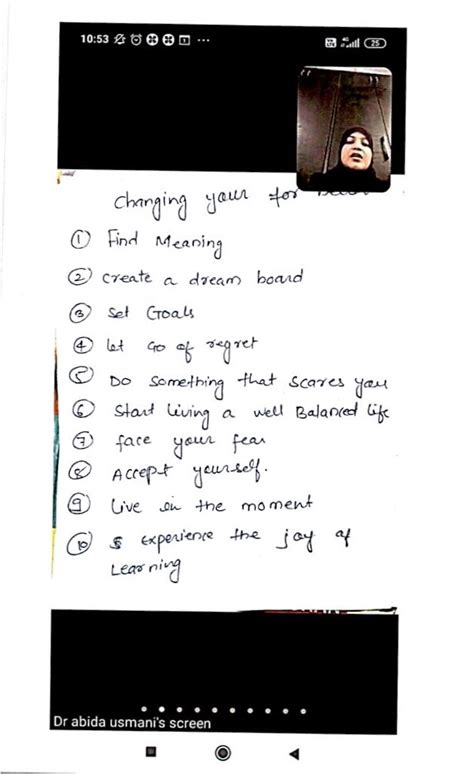 10:53 ...
4G 25
Changing your for
① Find Meaning
② Create a dream board
③ Set Goals
④ let Go of regret
⑤ Do something that scares you
⑥ Start living a well Balanced life
⑦ face your fear
⑧ Accept yourself.
⑨ live in the moment
⑩ Experience the joy of
Learning
Dr abida usmani's screen